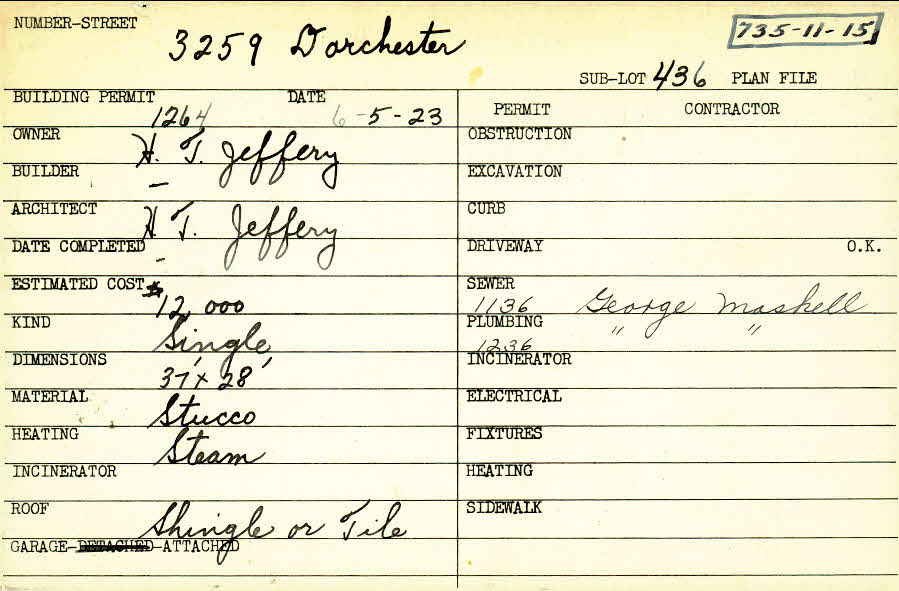 NUMBER-STREET 3259 Dorchester 735-11-15
SUB-LOT 436 PLAN FILE
BUILDING PERMIT 1264 DATE 6-5-23
PERMIT CONTRACTOR
OWNER H. T. Jeffery
OBSTRUCTION
BUILDER –
EXCAVATION
ARCHITECT H. T. Jeffery
CURB
DATE COMPLETED –
DRIVEWAY O.K.
ESTIMATED COST $12,000
SEWER 1136 George Maskell
KIND Single
PLUMBING 1236 " "
DIMENSIONS 37' x 28'
INCINERATOR
MATERIAL Stucco
ELECTRICAL
HEATING Steam
FIXTURES
INCINERATOR
HEATING
ROOF Shingle or Tile
SIDEWALK
GARAGE-DETACHED-ATTACHED